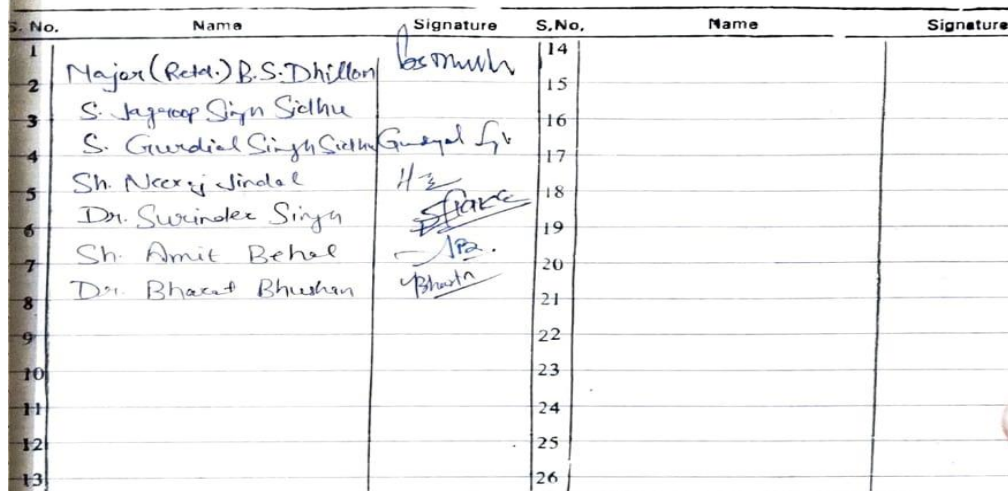 S. No. Name Signature S.No. Name Signature
1 14
Major (Retd.) B.S. Dhillon
2 15
S. Jagroop Singh Sidhu
3 16
S. Gurdial Singh Sidhu Gurdyal
4 17
Sh. Neeraj Jindal
5 18
Dr. Surinder Singh
6 19
Sh. Amit Behal
7 20
Dr. Bharat Bhushan Bharat
8 21
9 22
10 23
11 24
12 25
13 26